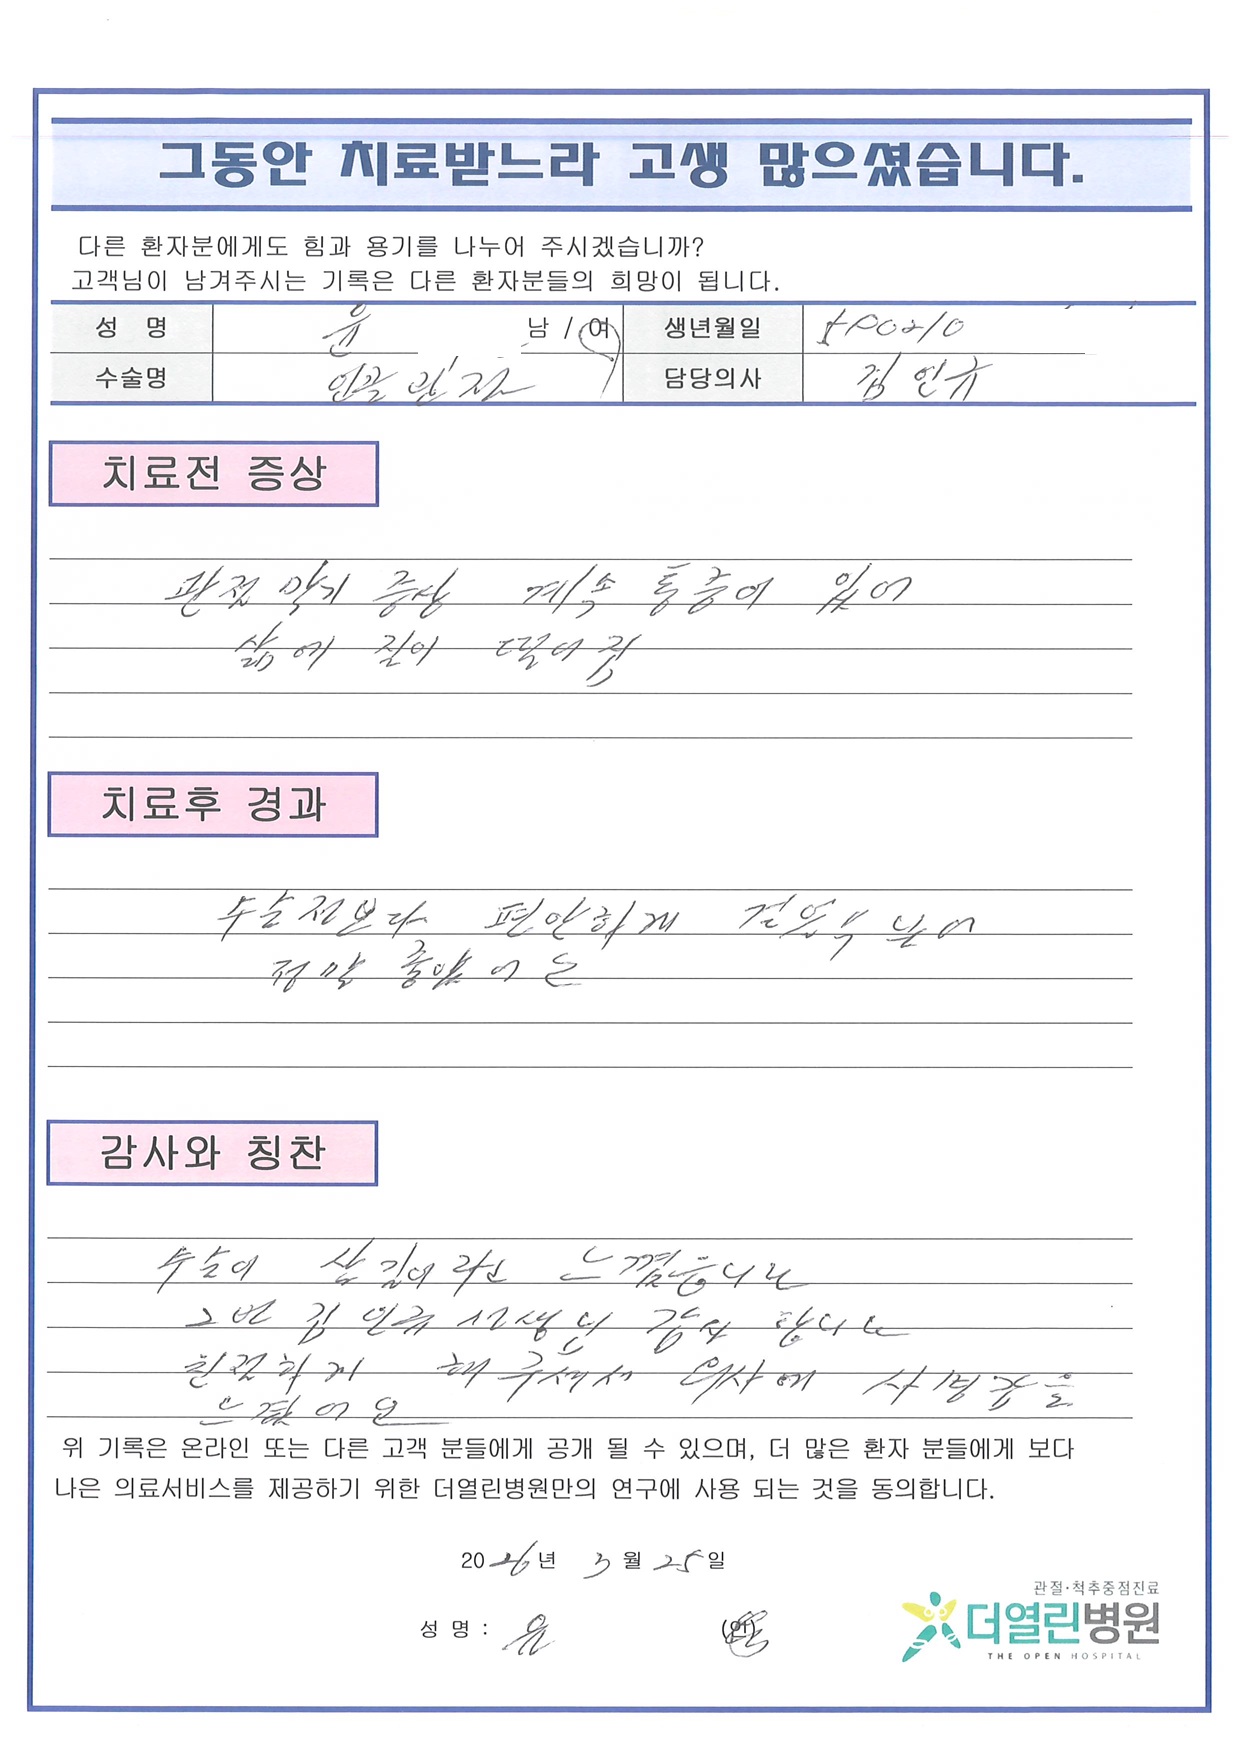 그동안 치료받느라 고생 많으셨습니다.
다른 환자분에게도 힘과 용기를 나누어 주시겠습니까?
고객님이 남겨주시는 기록은 다른 환자분들의 희망이 됩니다.
성 명 윤 남 / 여 생년월일
수술명 인공관절 담당의사 김인규
치료전 증상
관절 막기 증상 계속 통증이 있어
삶에 질이 떨어짐
치료후 경과
수술전보다 편안하게
정말 좋았어요
감사와 칭찬
수술이 살길이라고 느꼈습니다
김인규 선생님 감사 합니다
친절하게 해 주셔서 의사에 사명감을
느꼈어요
위 기록은 온라인 또는 다른 고객 분들에게 공개 될 수 있으며, 더 많은 환자 분들에게 보다
나은 의료서비스를 제공하기 위한 더열린병원만의 연구에 사용 되는 것을 동의합니다.
2026년 3월 25일
성 명 : 윤 (인)
관절·척추중점진료
더열린병원
THE OPEN HOSPITAL